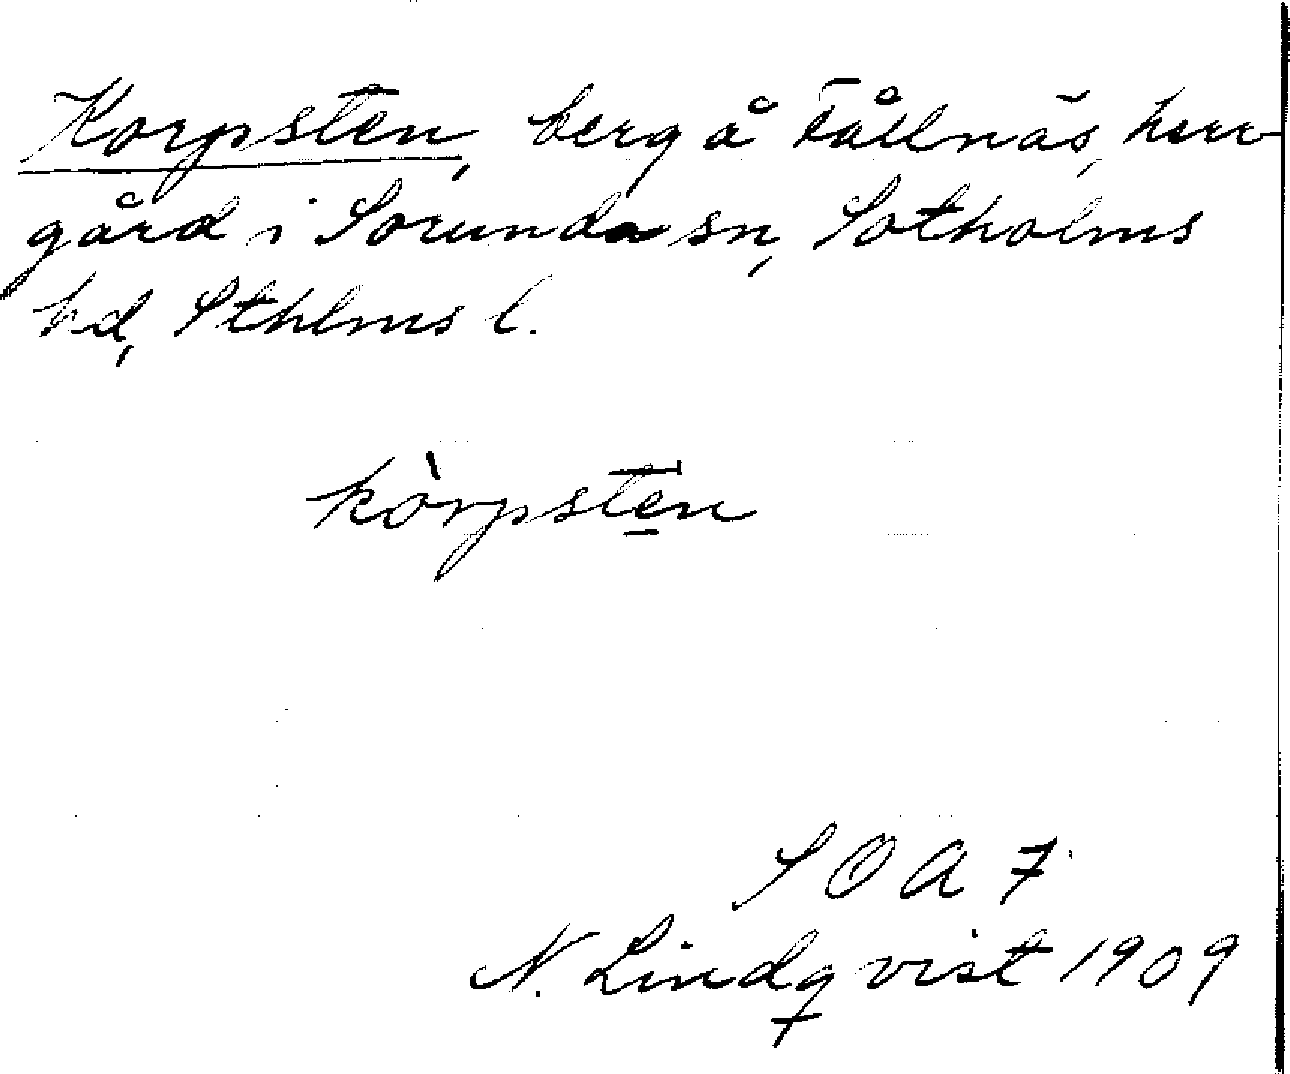 Korpsten, berg å Fållnäs, herr-
gård i Sorunda sn, Sotholms
hd, Sthlms l.
kòrpsten
SOAF
N. Lindqvist 1909